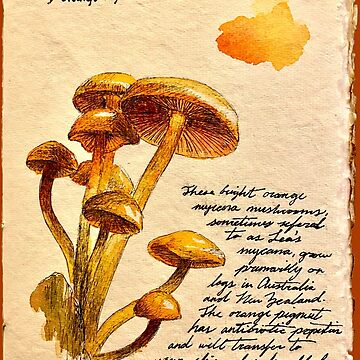 These bright orange
mycena mushrooms,
sometimes refered
to as Lea's
mycena, grow
primarily on
logs in Australia
and New Zealand.
The orange pigment
has antibiotic
and will transfer to